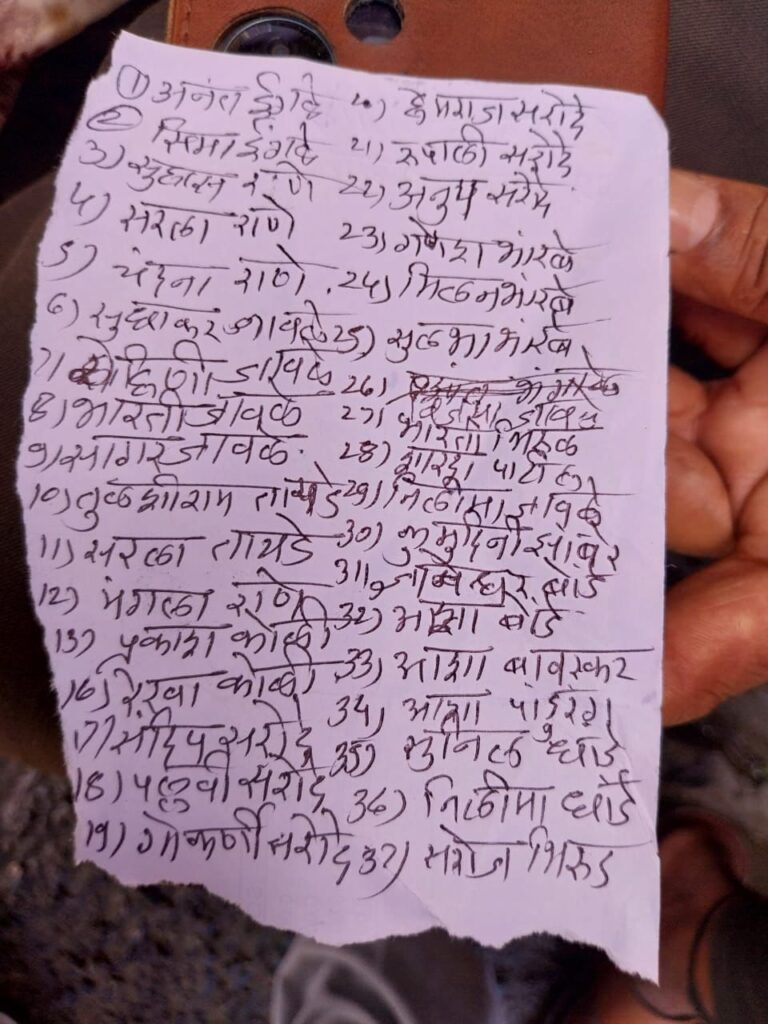 1) अनंत इंगळे
2) सिमा इंगळे
3) सुहास राणे
4) सरला राणे
5) चंदना राणे
6) सुधाकर जावळे
7) रोहिणी जावळे
8) भारती जावळे
9) सागर जावळे
10) तुळशीराम तायडे
11) सरला तायडे
12) मंगला राणे
13) प्रकाश कोळी
16) रेखा कोळी
17) संदिप सरोदे
18) पल्लवी सरोदे
19) गोकर्णा सरोदे
हेमराज सरोदे
21) रुपाली सरोदे
22) अनुप सरोदे
23) गणेश भारंबे
24) मिलन भारंबे
25) सुलभा भारंबे
26)
जावळे
27) भारती भिरुड
28) शारदा पाटील
29) निलीमा जावळे
30) कुमुदिनी झांबरे
31) बोंडे
32) आशा बोंडे
33) आशा बावस्कर
34) आशा पांडुरंग
35) सुनिल धांडे
36) निलीमा धांडे
37) सरोज भिरुड